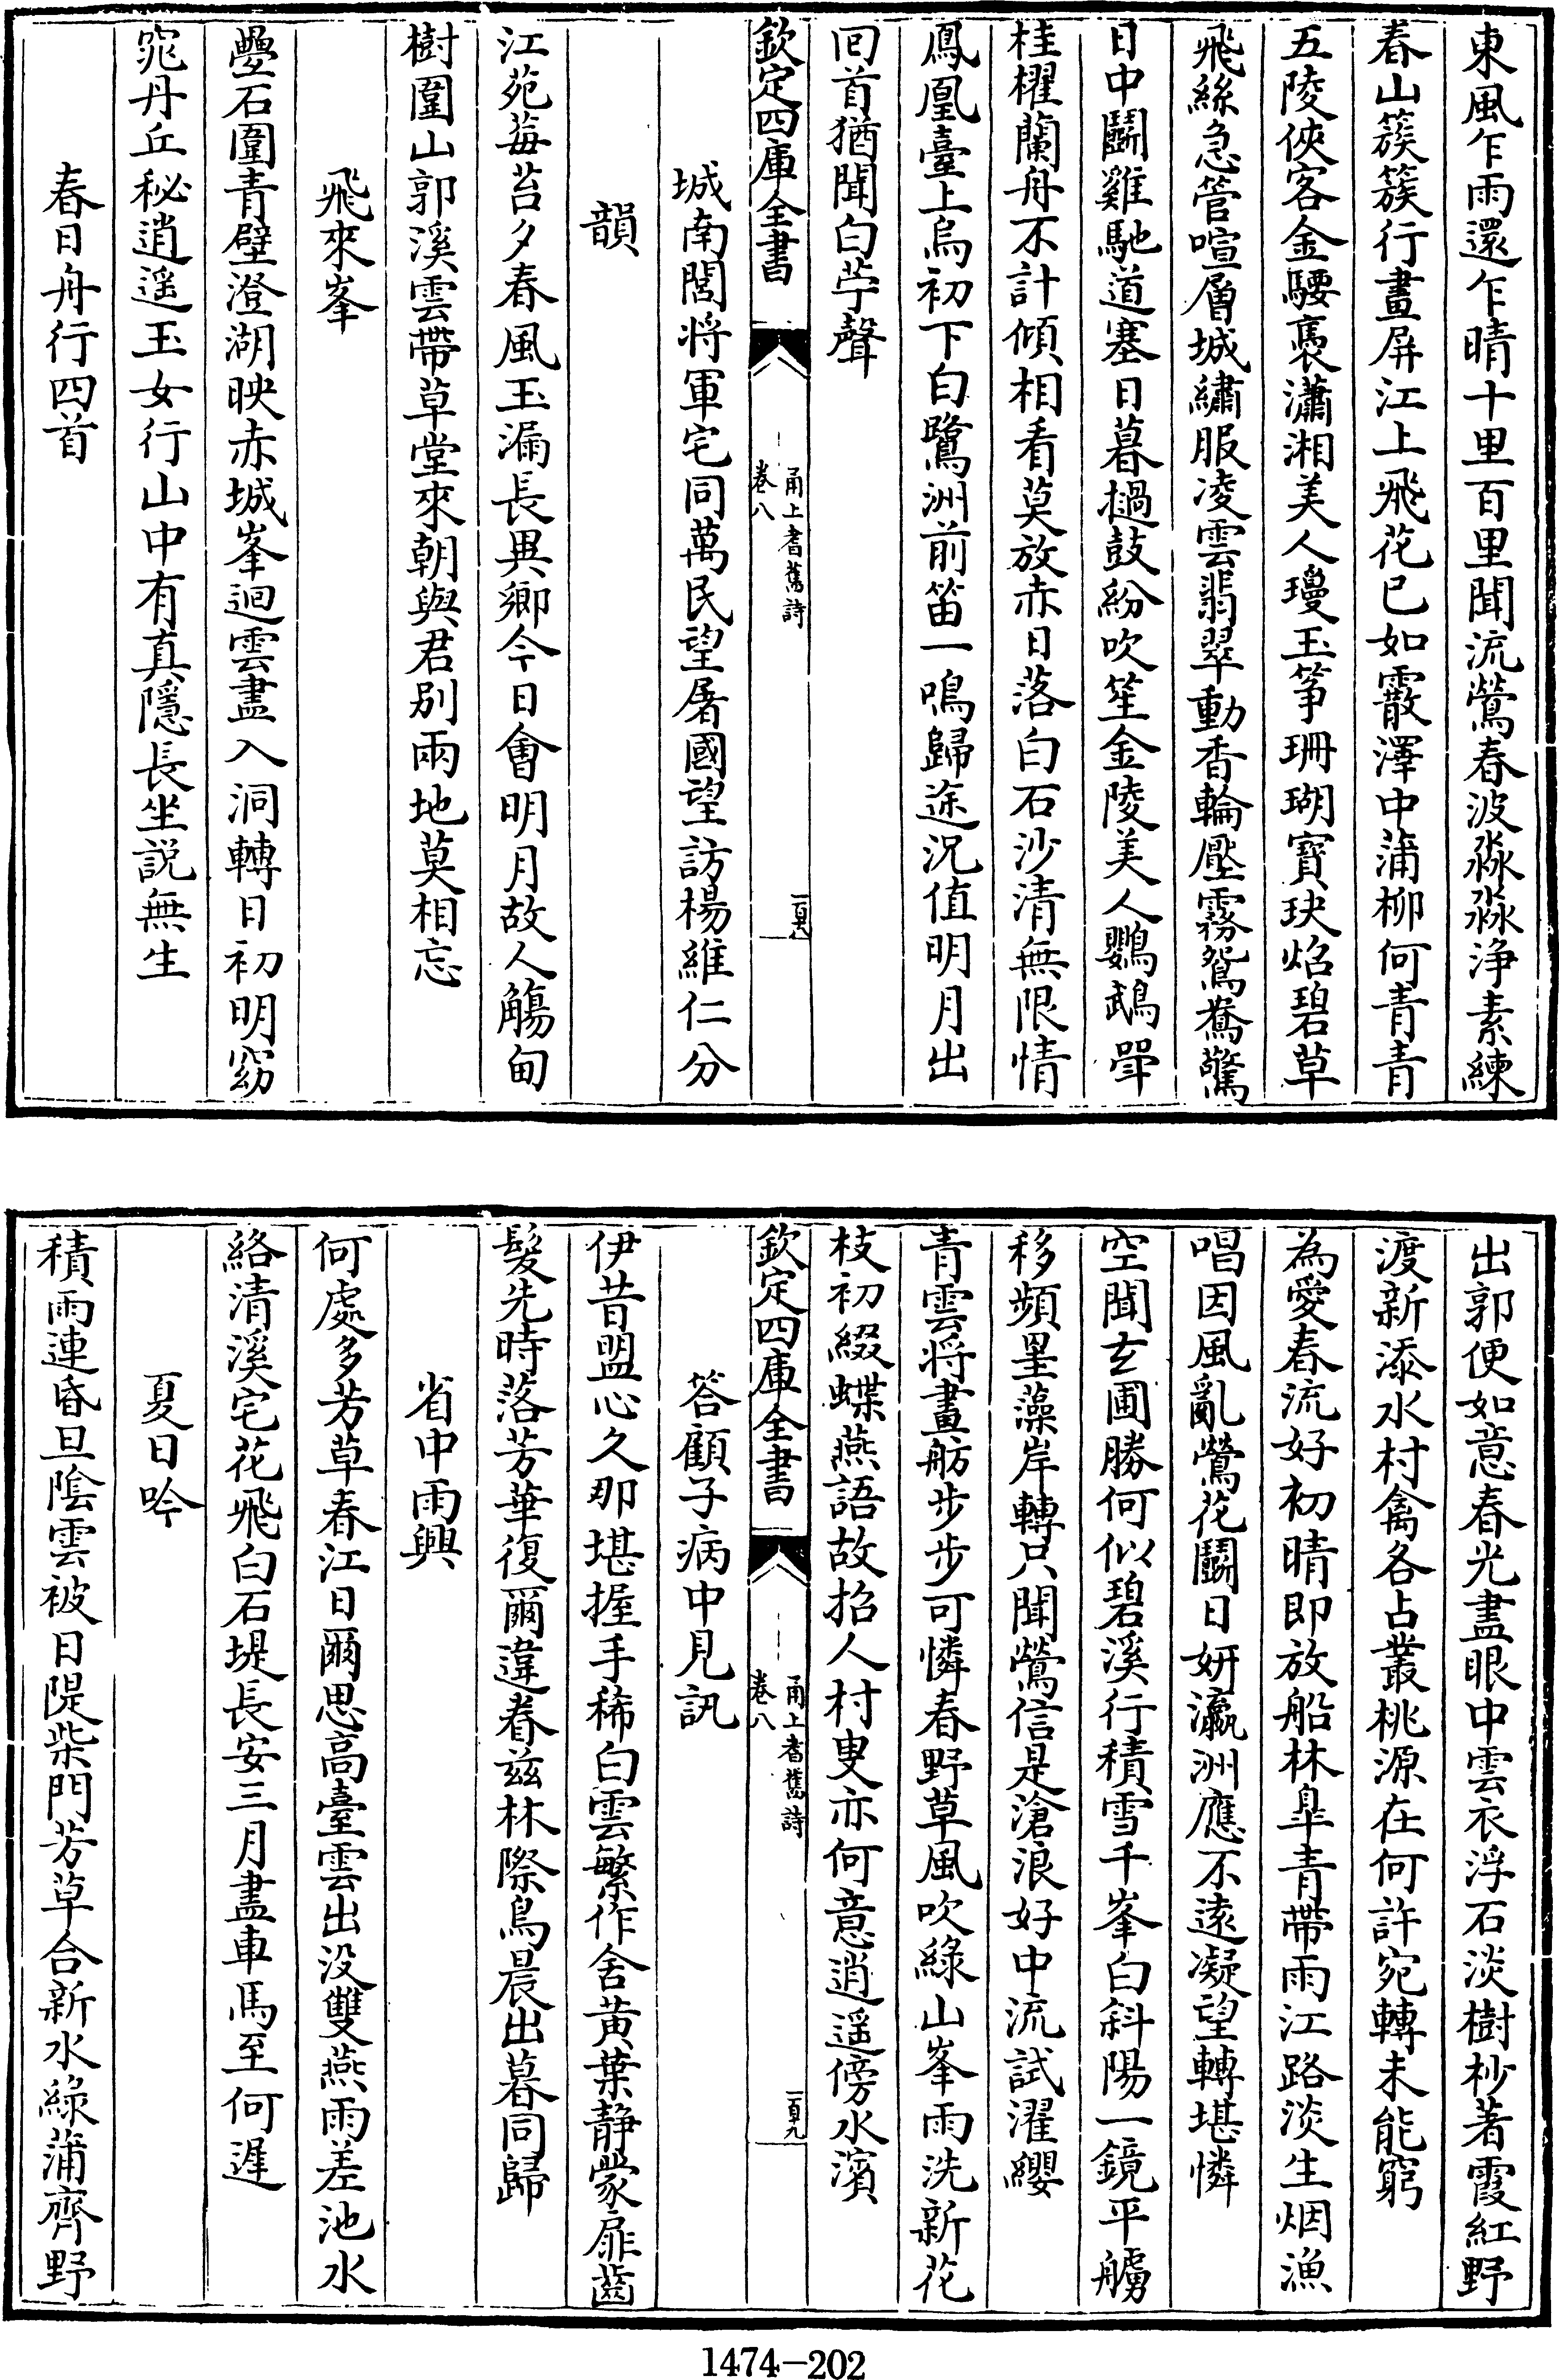 東風乍雨還乍晴十里百里聞流鶯春波淼淼浄素練
春山簇簇行畫屏江上飛花已如霰澤中蒲柳何青青
五陵俠客金騕褭瀟湘美人瓊玉筝珊瑚寶玦焰碧草
飛絲急管喧層城繡服凌雲翡翠動香輪壓霧鴛鴦驚
日中鬬雞馳道塞日暮撾鼓紛吹笙金陵美人鸚鵡斝
桂櫂蘭舟不計傾相看莫放赤日落白石沙清無限情
鳳凰臺上烏初下白鷺洲前笛一鳴歸途况值明月出
回首猶聞白苧聲
欽定四庫全書
甬上耆舊詩
卷八
一百八
城南閣將軍宅同萬民望屠國望訪楊維仁分
韻
江苑莓苔夕春風玉漏長異鄉今日會明月故人觴甸
樹圍山郭溪雲帶草堂來朝與君别兩地莫相忘
飛來峯
疊石圍青壁澄湖映赤城峯迴雲盡入洞轉日初明窈
窕丹丘秘逍遥玉女行山中有真隱長坐説無生
春日舟行四首
出郭便如意春光盡眼中雲衣浮石淡樹杪著霞紅野
渡新添水村禽各占叢桃源在何許宛轉未能窮
為愛春流好初晴即放船林臯青帶雨江路淡生烟漁
唱因風亂鶯花鬬日妍瀛洲應不遠凝望轉堪憐
空聞玄圃勝何似碧溪行積雪千峯白斜陽一鏡平艣
移頻罣藻岸轉只聞鶯信是滄浪好中流試濯纓
青雲將畫舫步步可憐春野草風吹綠山峯雨洗新花
枝初綴蝶燕語故招人村叟亦何意逍遥傍水濱
欽定四庫全書
甬上耆舊詩
卷八
一百九
答顧子病中見訊
伊昔盟心久那堪握手稀白雲繁作舍黄葉静蒙扉齒
髮先時落芳華復爾違眷兹林際鳥晨出暮同歸
省中雨興
何處多芳草春江日爾思高臺雲出没雙燕雨差池水
絡清溪宅花飛白石堤長安三月盡車馬至何遲
夏日吟
積雨連昏旦陰雲被日隄柴門芳草合新水綠蒲齊野
1474-202